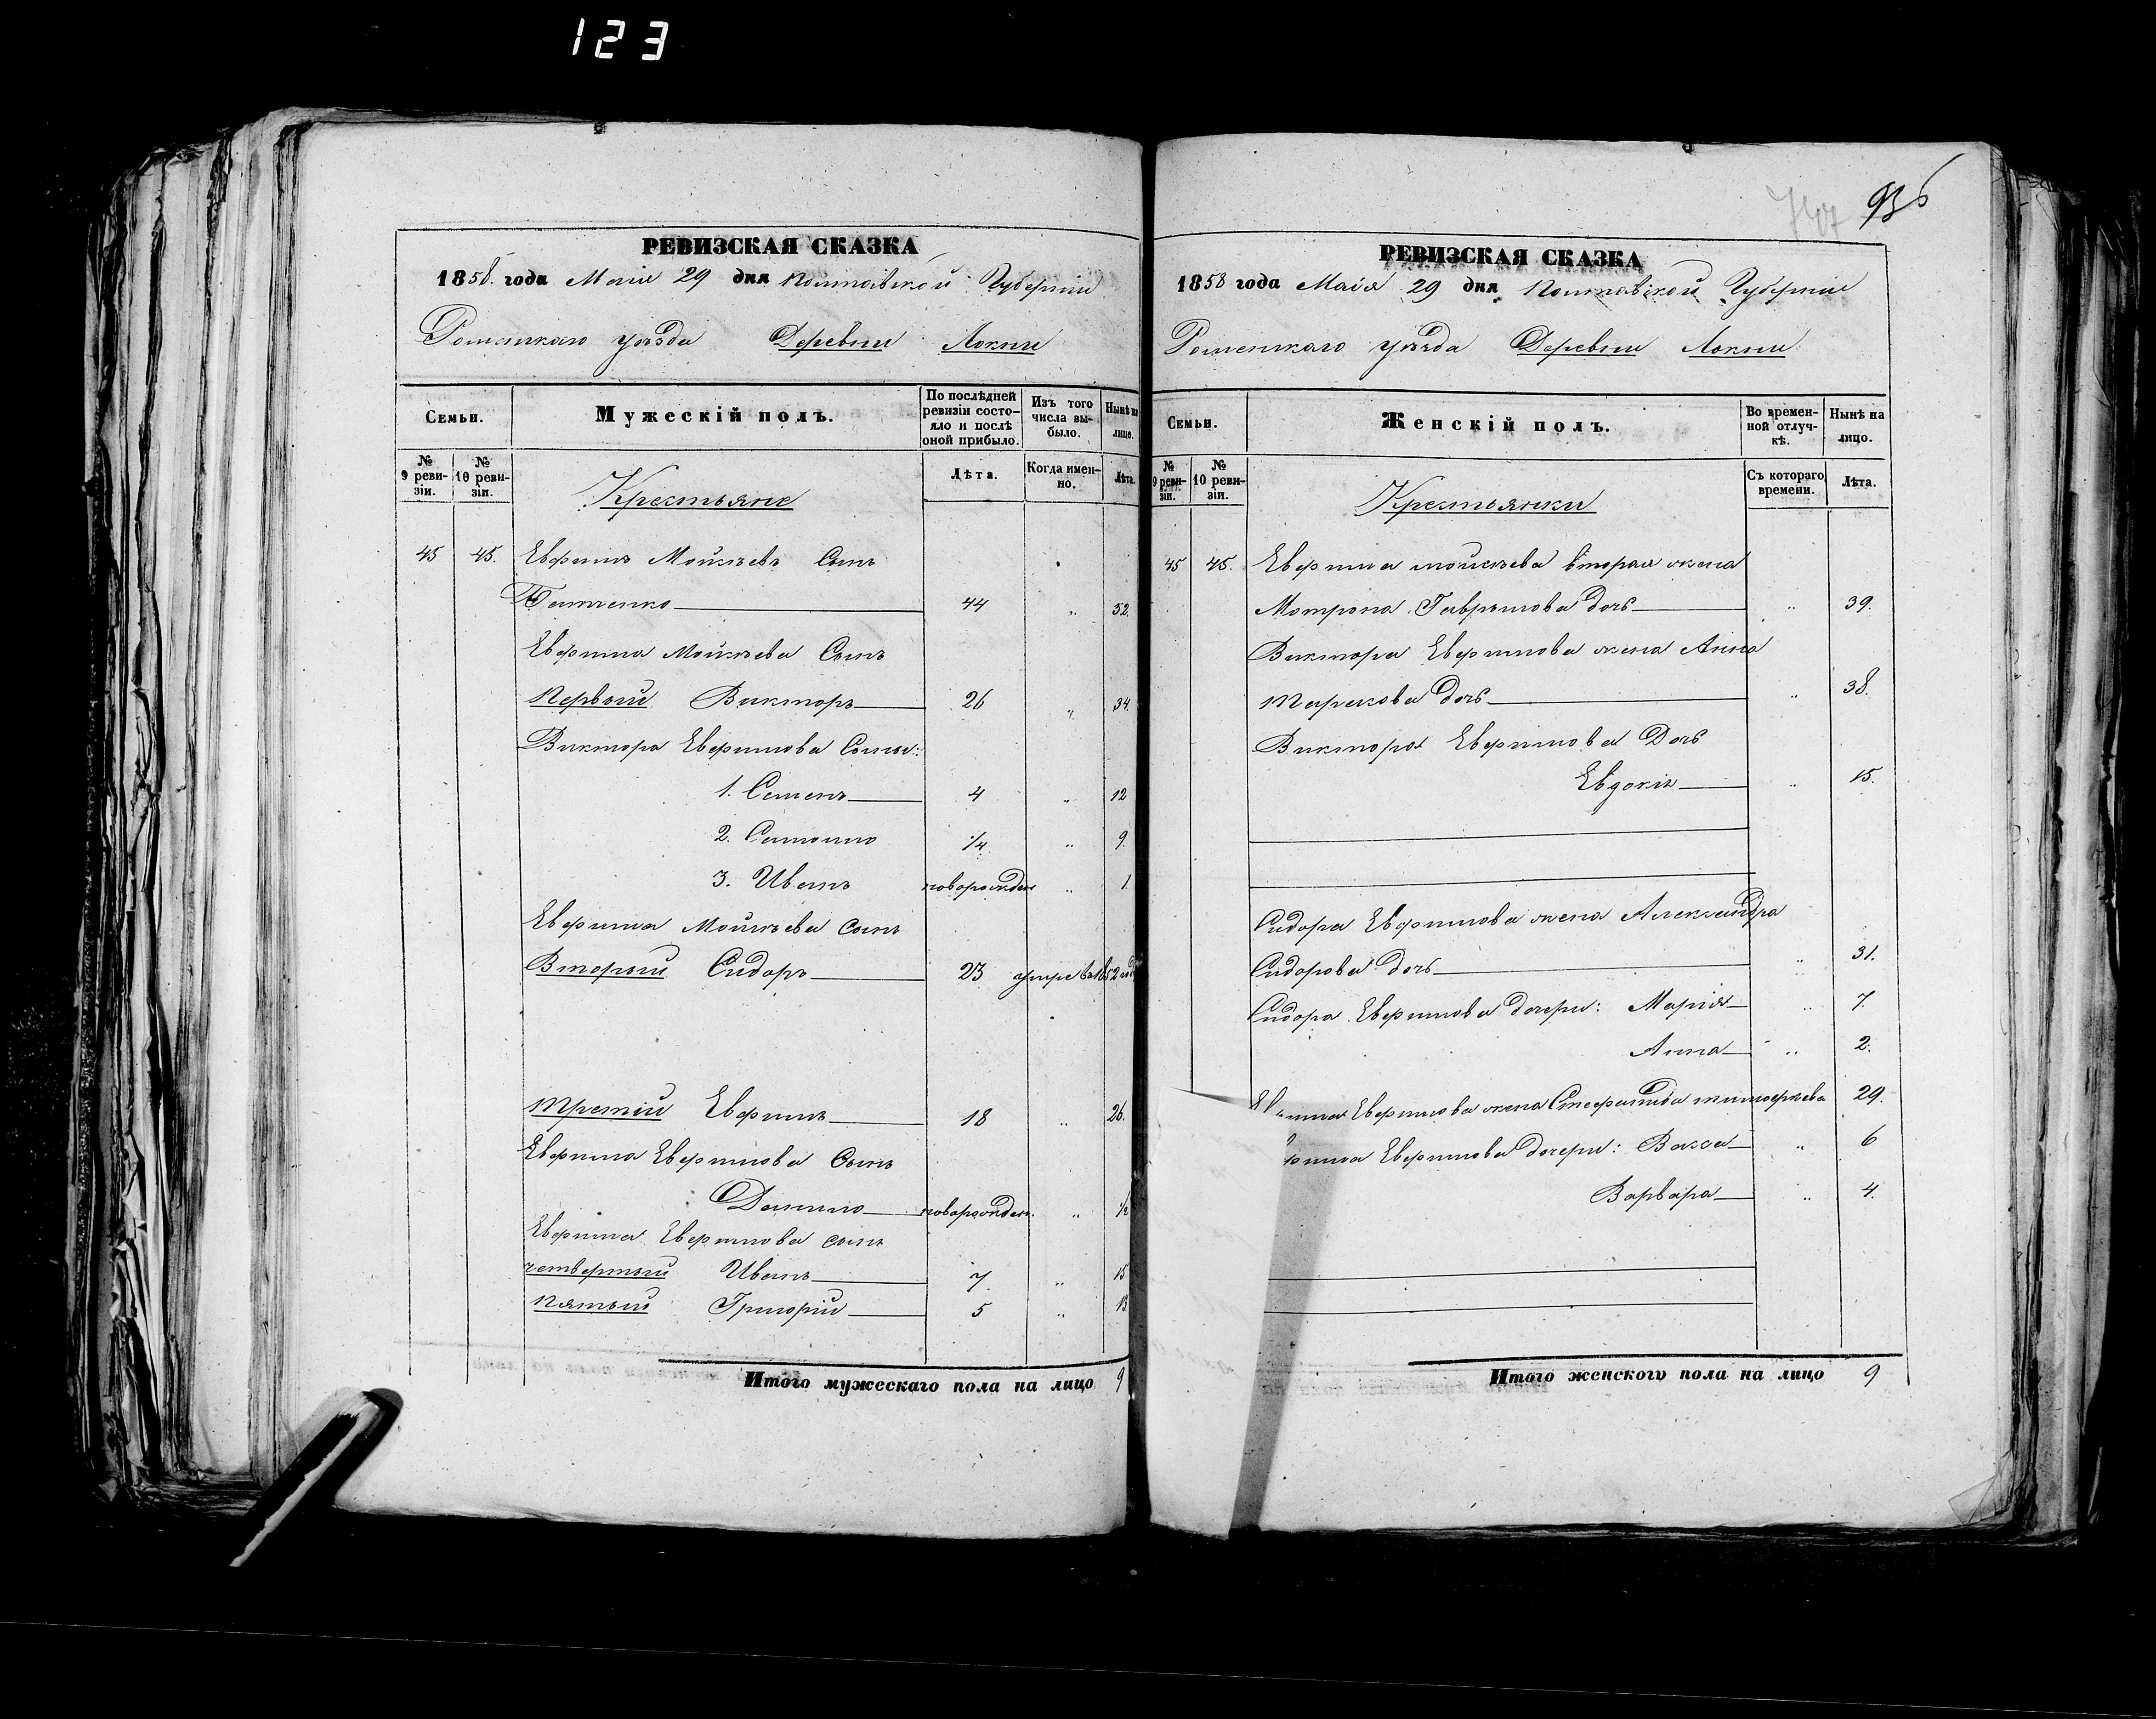 123
936
РЕВИЗСКАЯ СКАЗКА
1858. года Маія 29 дня Полтавской Губерніи
Роменскаго уѣзда Деревни Локни
Семьи.
Мужескій полъ.
По послѣдней ревизіи состояло и послѣ оной прибыло.
Изъ того числа выбыло.
Нынѣ на лицо.
№ 9 ревизіи.
№ 10 ревизіи.
Крестьяне
Лѣта.
Когда именно.
Лѣта.
45 45. Евфимъ Моисѣевъ Сынъ
44 „ 52.
Евфима Моисѣева Сынъ
Первый Викторъ 26 „ 34.
Виктора Евфимова Сыны:
1. Семенъ 4 „ 12
2. 1/4 „ 9.
3. Иванъ новорожден „ 1
Евфима Моисѣева сынъ
Вторый Сидоръ 23 умре въ 1852 год
Третій Евфимъ 18 „ 26.
Евфима Евфимова Сынъ
Данило новорожден. „ 1/2
Евфима Евфимова сынъ
четвертый Иванъ 7 „ 15
пятый Григорій 5 „ 13.
Итого мужескаго пола на лицо 9
РЕВИЗСКАЯ СКАЗКА
1858 года Маія 29 дня Полтавской Губерніи
Роменскаго уѣзда Деревни Локни
Семьи.
Женскій полъ.
Во временной отлучкѣ.
Нынѣ на лицо.
№ 9 ревизіи.
№ 10 ревизіи.
Крестьянки
Съ котораго времени.
Лѣта.
45 45. Евфима Моисѣева вторая жена
Мотрона Гаврилова дочь „ 39.
Виктора Евфимова жена Анна
Тарасова дочь „ 38.
Виктора Евфимова Дочь
Евдокія „ 15.
Сидора Евфимова жена Александра
Сидорова дочь „ 31.
Сидора Евфимова дочери: Марія „ 7.
Анна „ 2.
Евфимова жена Стефанида Тимофѣева 29.
Евфимова дочери: Васса „ 6
Варвара „ 4.
Итого женского пола на лицо 9